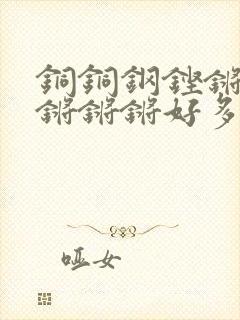 銅銅鋼鏗鏘
鏘鏘鏘好多
哑女